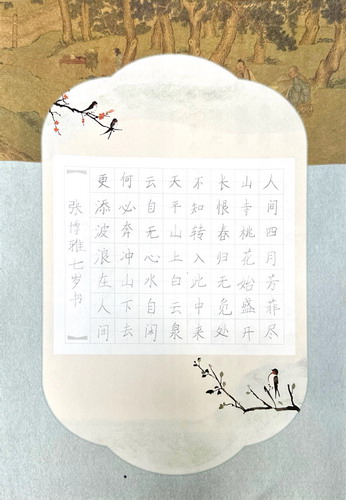 人间四月芳菲尽
山寺桃花始盛开
长恨春归无觅处
不知转入此中来
天平山上白云泉
云自无心水自闲
何必奔冲山下去
更添波浪在人间
张博雅七岁书